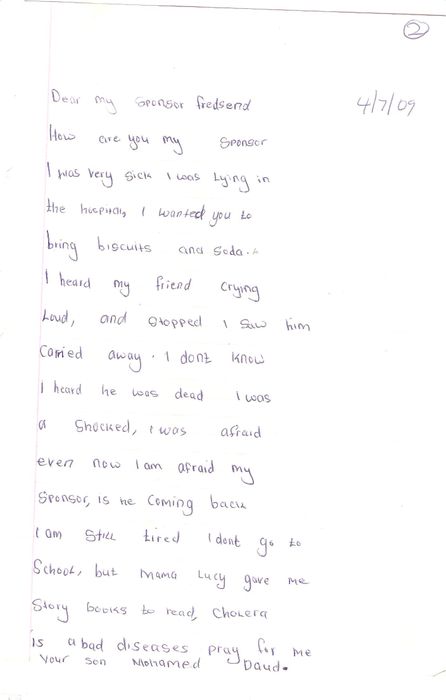 2
Dear my sponsor fredsend 4/7/09
How are you my sponsor
I was very sick I was lying in
the hospital, I wanted you to
bring biscuits and soda.
I heard my friend crying
Loud, and stopped I saw him
Carried away. I dont know
I heard he was dead I was
a shocked, I was afraid
even now I am afraid my
Sponsor, is he coming back
I am still tired I dont go to
School, but Mama Lucy gave me
Story books to read, Cholera
is a bad diseases pray for me
Your son Mohamed Daud.